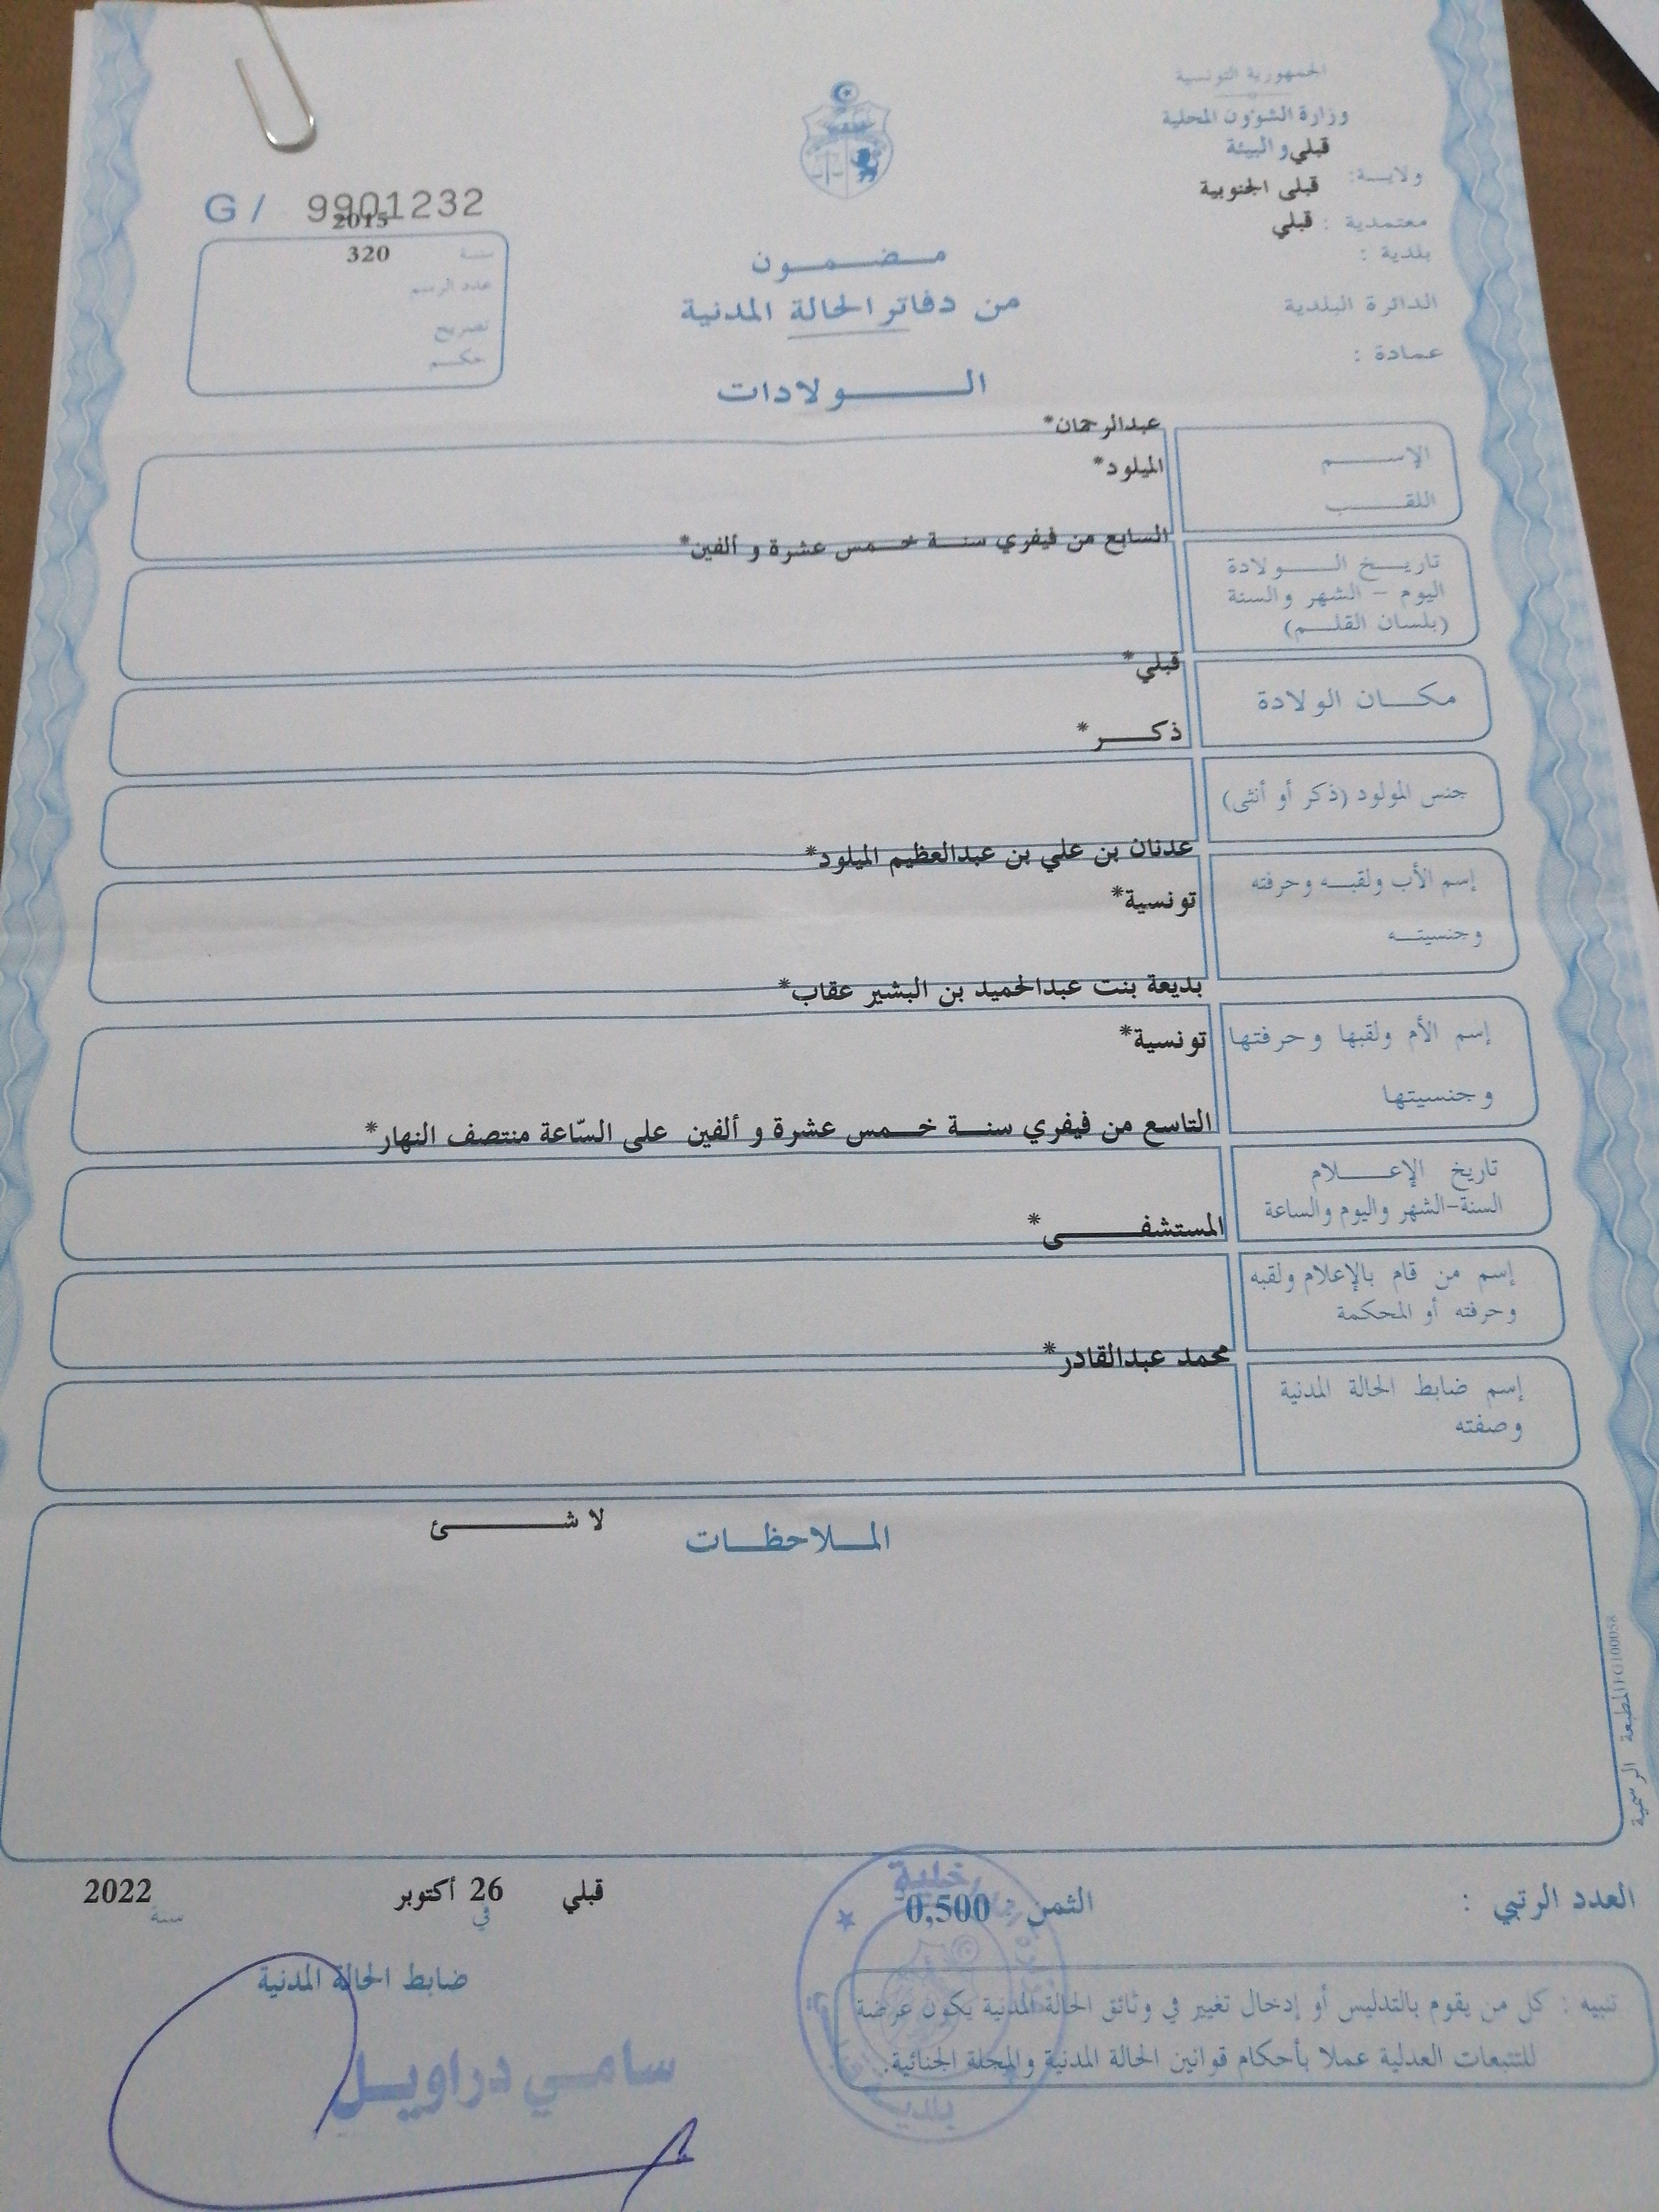 الجمهورية التونسية
وزارة الشؤون المحلية
والبيئة
ولايـــة: قبلي
معتمدية : قبلى الجنوبية
بلدية : قبلي
الدائرة البلدية
عمادة :
G/ 9901232
سنــة 2015
عدد الرسم 320
تصريح
حكــم
مـــضـــمـــون
من دفاتر الحالة المدنية
الـــــولادات
الإســــــم عبدالرحمان*
اللقــــــب الميلود*
تاريـــخ الـــــولادة
اليوم – الشهر والسنة
(بلسان القلـــم)
السابع من فيفري سنـــة خـــمس عشرة و ألفين*
مكـــان الولادة
قبلي*
جنس المولود (ذكر أو أنثى)
ذكـــــر*
إسم الأب ولقبـــه وحرفته
وجنسيتـــه
عدنان بن علي بن عبدالعظيم الميلود*
تونسية*
إسم الأم ولقبها وحرفتها
وجنسيتها
بديعة بنت عبدالحميد بن البشير عقاب*
تونسية*
تاريخ الإعـــــلام
السنة-الشهر واليوم والساعة
التاسع من فيفري سنـــة خـــمس عشرة و ألفين على السّاعة منتصف النهار*
إسم من قام بالإعلام ولقبه
وحرفته أو المحكمة
المستشفـــــــى*
إسم ضابط الحالة المدنية
وصفته
محمد عبدالقادر*
الملاحظـــات
لا شـــــــئ
المطبعة الرسمية
العدد الرتبي :
الثمن : 0,500
قبلي في 26 أكتوبر سنة 2022
ضابط الحالة المدنية
سامي دراويل
تنبيه : كل من يقوم بالتدليس أو إدخال تغيير في وثائق الحالة المدنية يكون عرضة
للتتبعات العدلية عملا بأحكام قوانين الحالة المدنية والمجلة الجنائية.